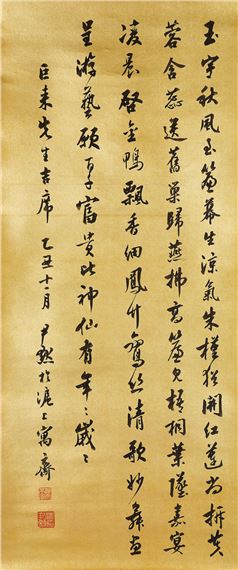 玉宇秋風至簾幕生涼氣朱槿猶開紅蓮尚拆芙
蓉含蕊送舊巢歸燕拂高簷見梧桐葉墜嘉宴
凌晨啓金鴨飄香細鳳竹鸞絲清歌妙舞盡
呈游藝願百千富貴比神仙有年〻歲〻
巨來先生吉席 乙丑十二月 尹默於滬上寓齋